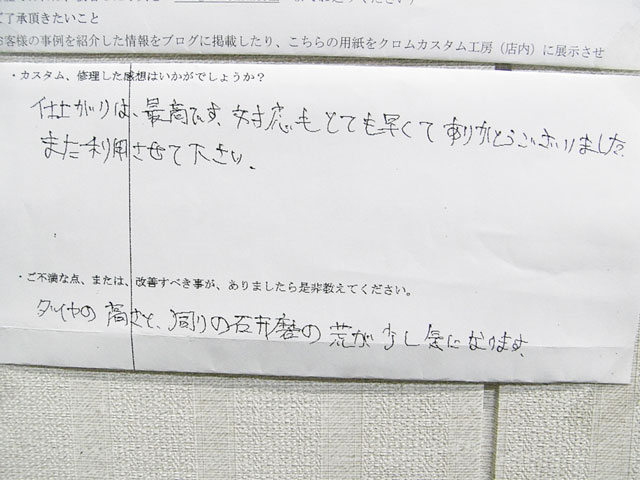 ご了承頂きたいこと
お客様の事例を紹介した情報をブログに掲載したり、こちらの用紙をクロムカスタム工房（店内）に展示させ
・カスタム、修理した感想はいかがでしょうか？
仕上がりは、最高です。対応もとても早くてありがとうございました。
また利用させて下さい。
・ご不満な点、または、改善すべき事が、ありましたら是非教えてください。
ダイヤの高さと、周りの石研磨の荒が少し気になります。